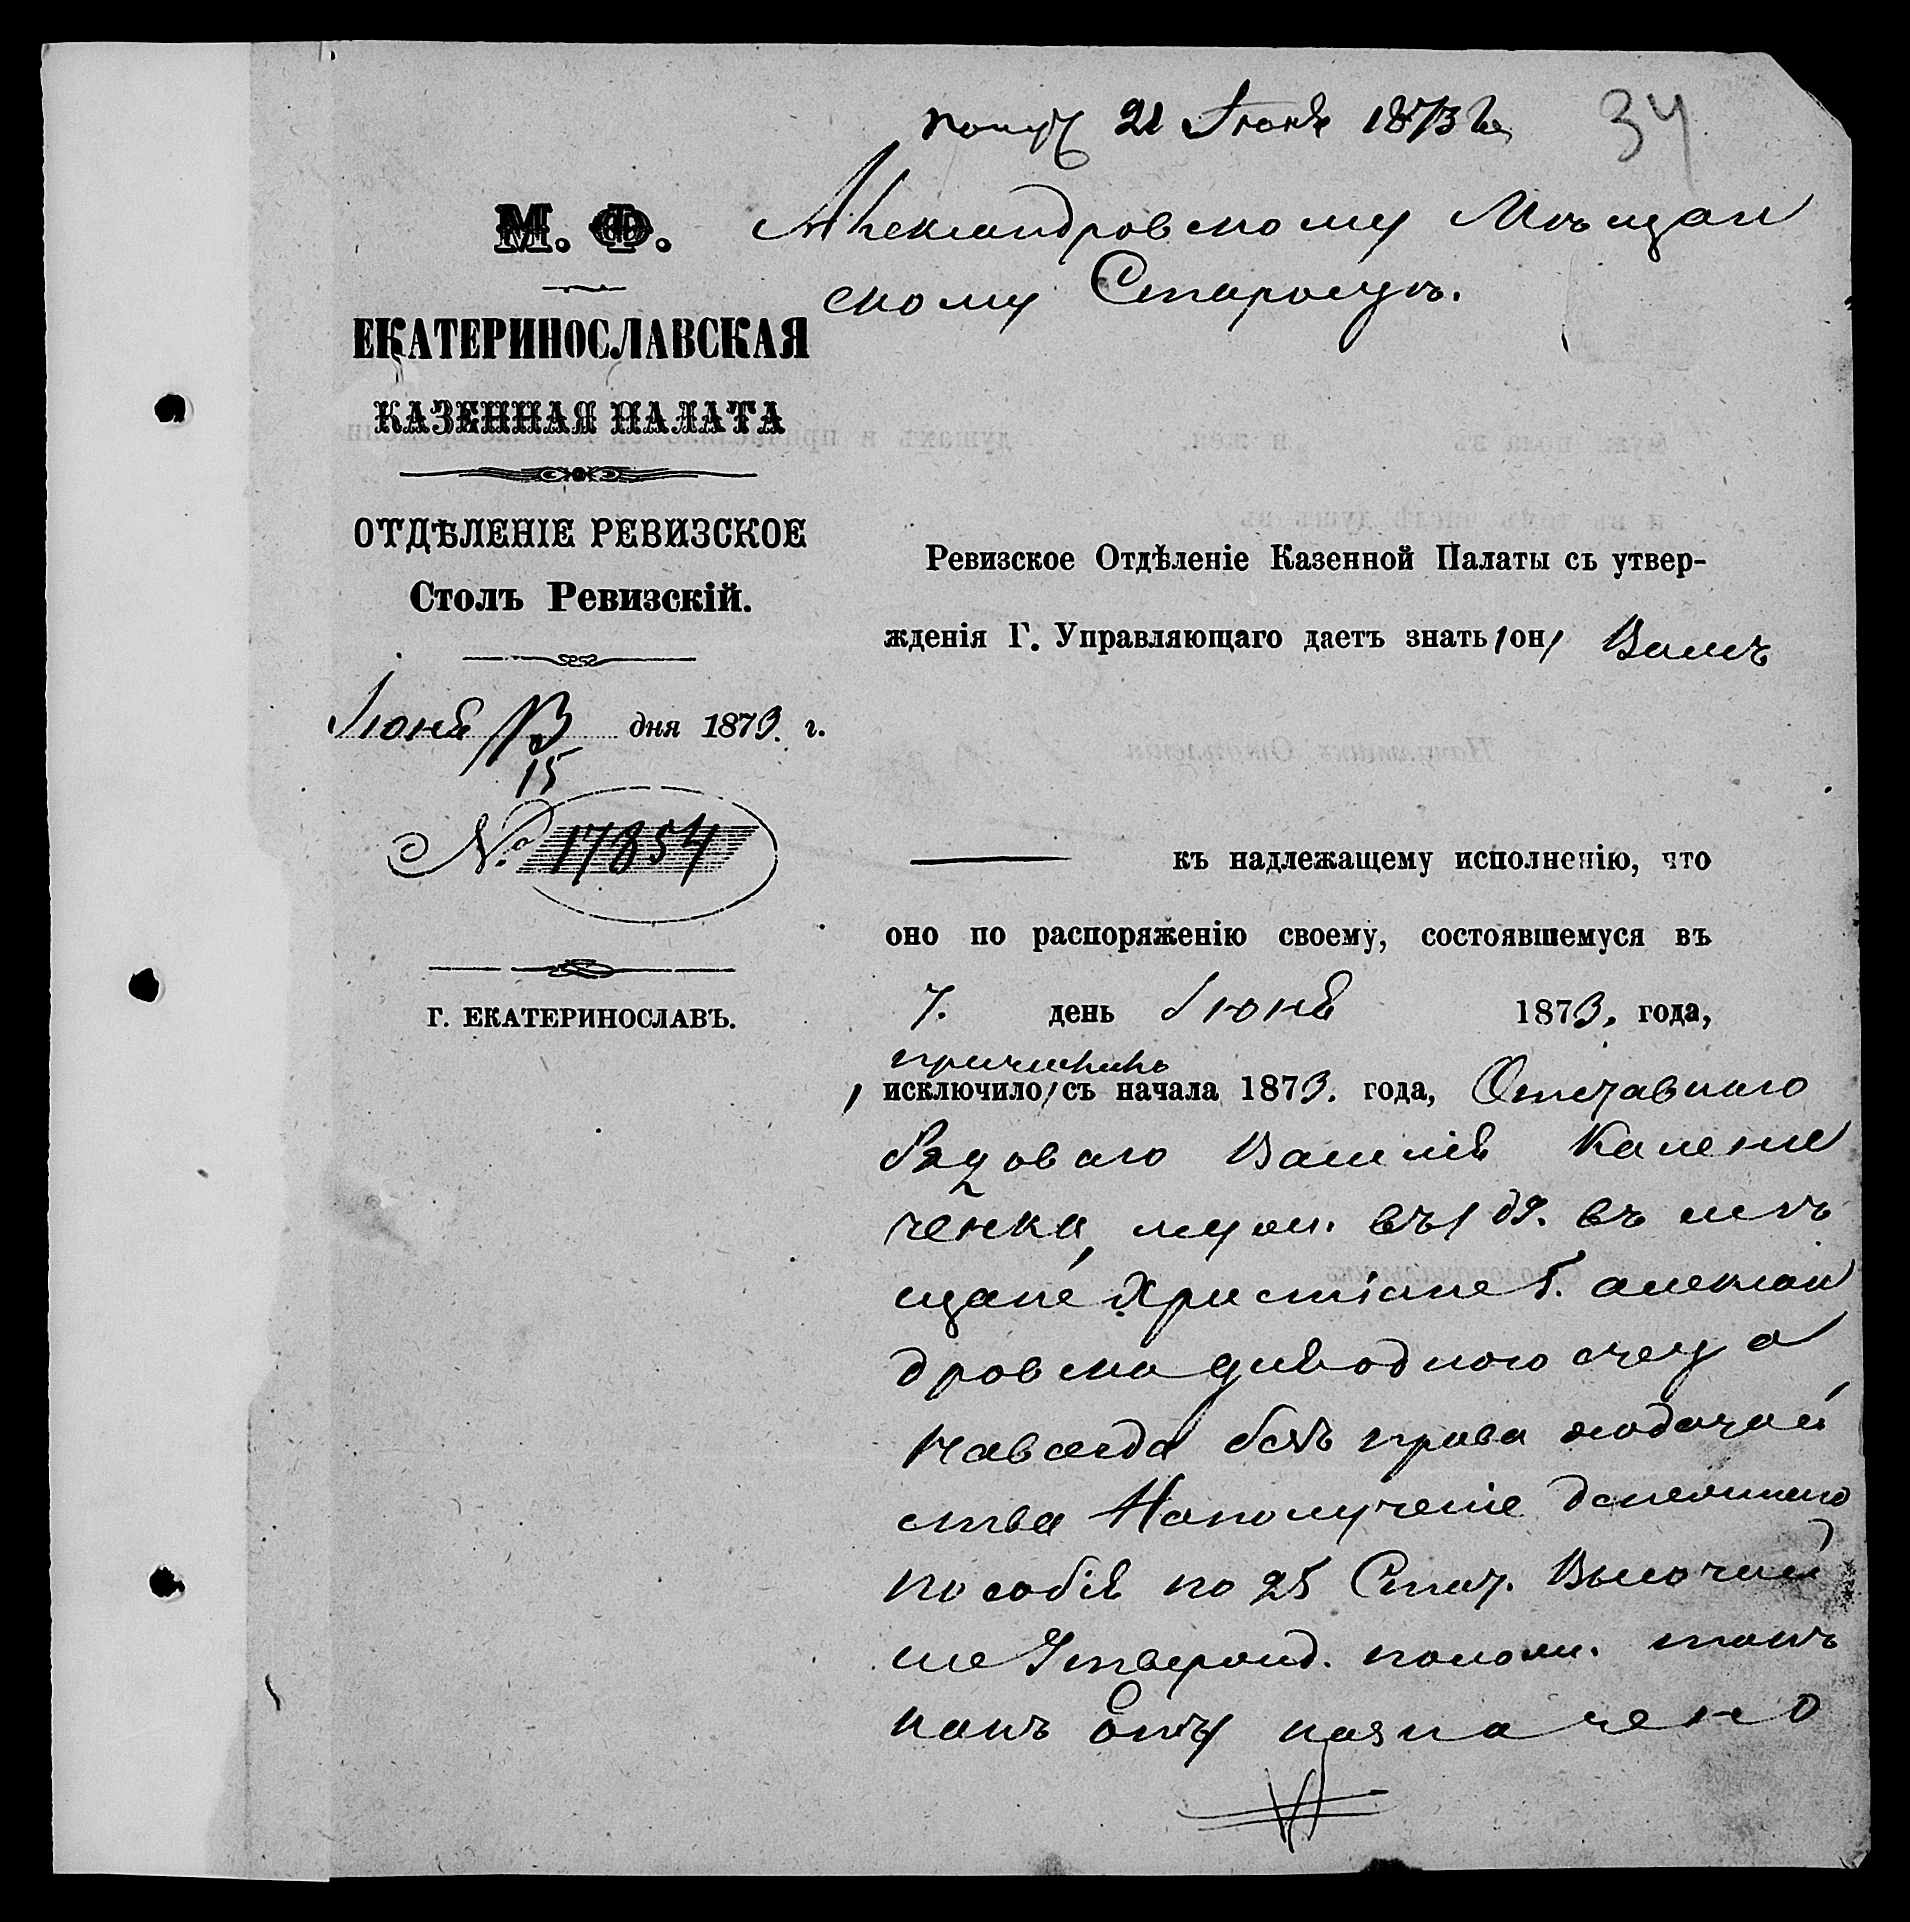 получ 21 Іюня 1873 г.
34
М. Ф.
ЕКАТЕРИНОСЛАВСКАЯ
КАЗЕННАЯ ПАЛАТА
ОТДѢЛЕНІЕ РЕВИЗСКОЕ
Столъ Ревизскій.
Іюня 13 дня 1873. г.
15
№ 17854
Г. ЕКАТЕРИНОСЛАВЪ.
Александровскому Мѣщан
скому Старостѣ.
Ревизское Отдѣленіе Казенной Палаты съ утвер-
жденія Г. Управляющаго даетъ знать /он/ Вамъ
къ надлежащему исполненію, что
оно по распоряженію своему, состоявшемуся въ
7. день Іюня 1873. года,
причислило
/ исключило / съ начала 1873. года, Отставнаго
Рядоваго Василія Калени
ченка, муж. въ 1 д. въ мѣ
щане Христіане Г. Алексан
дровска для одного счета
навсегда безъ права ходатай
ства На полученіе денежнаго
пособія по 25 Стат. Высочай
ше Утвержд. полож. такъ
какъ Ему назначено